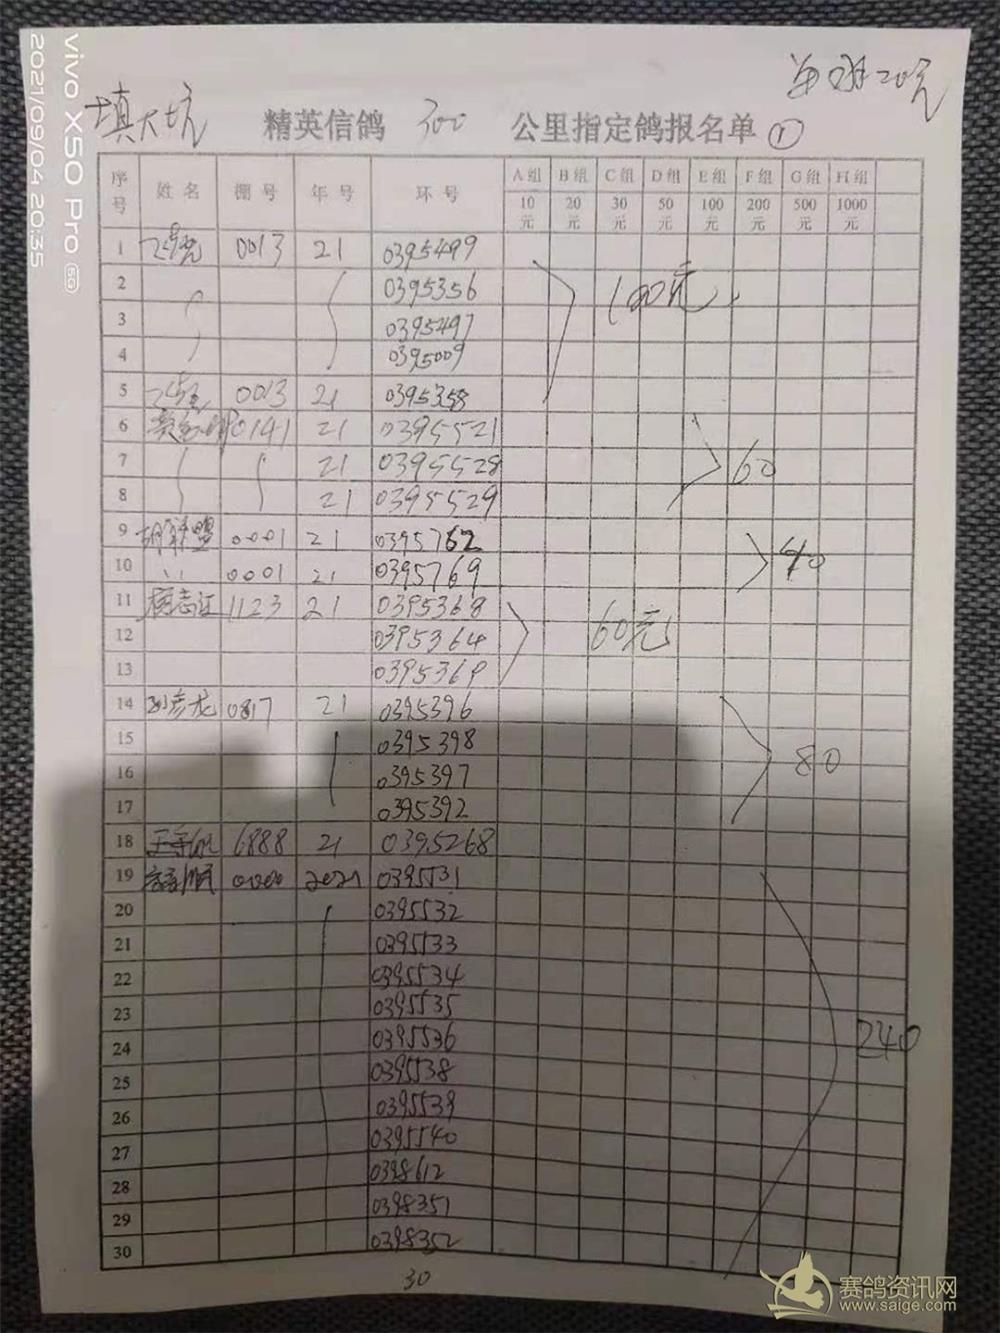 每羽20元
填大坑
精英信鸽 300 公里指定鸽报名单 ①
序号 姓名 棚号 年号 环号 A组 B组 C组 D组 E组 F组 G组 H组
10元 20元 30元 50元 100元 200元 500元 1000元
1 0013 21 0395499
2 0395356 100元
3 0395497
4 0395009
5 0013 21 0395358
6 0141 21 0395521
7 21 0395528 60
8 21 0395529
9 胡联盟 0001 21 0395762
10 〃 0001 21 0395769 40
11 0395368 1123 21
12 0395364 60元
13 0395369
14 孙彦龙 0817 21 0395396
15 0395398
16 0395397 80
17 0395392
18 6888 21 0395268
19 0000 2021 0395531
20 0395532
21 0395533
22 0395534
23 0395535
24 0395536 240
25 0395538
26 0395539
27 0395540
28 0398612
29 0398351
30 0398352
30
vivo X50 Pro 5G
2021/09/04 20:35
赛鸽资讯网
www.saige.com